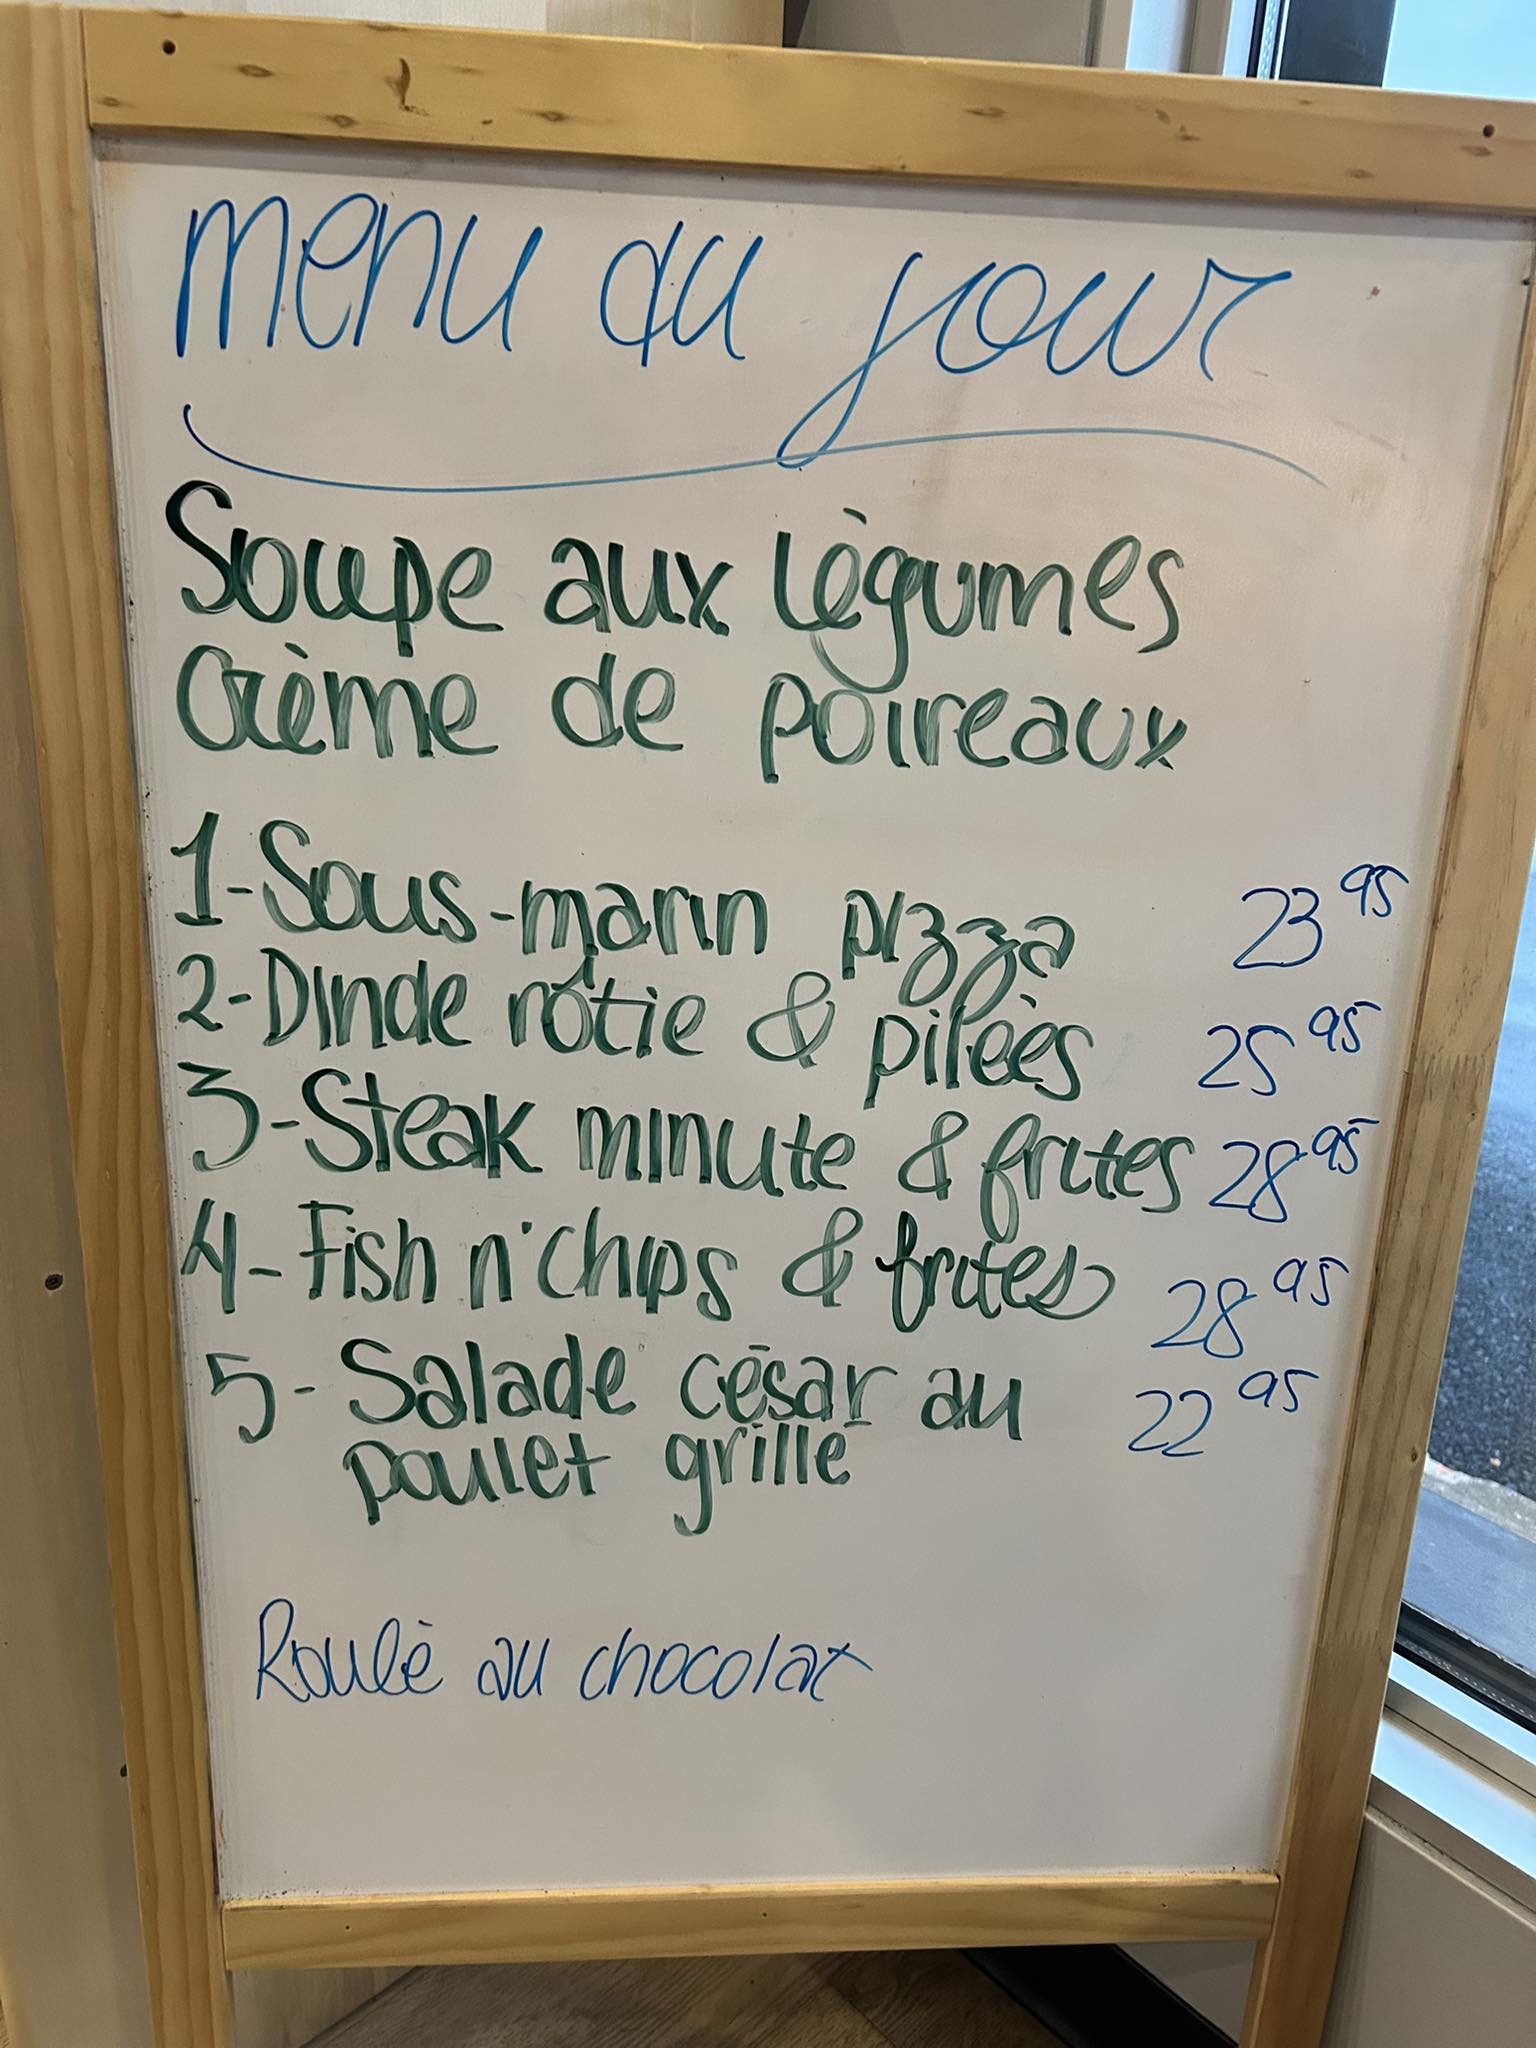 menu du jour
Soupe aux légumes
Crème de poireaux
1-Sous-marin pizza 23 95
2-Dinde rôtie & pilées 25 95
3-Steak minute & frites 28 95
4-Fish n'chips & frites 28 95
5-Salade césar au 22 95
poulet grillé
Roulé au chocolat